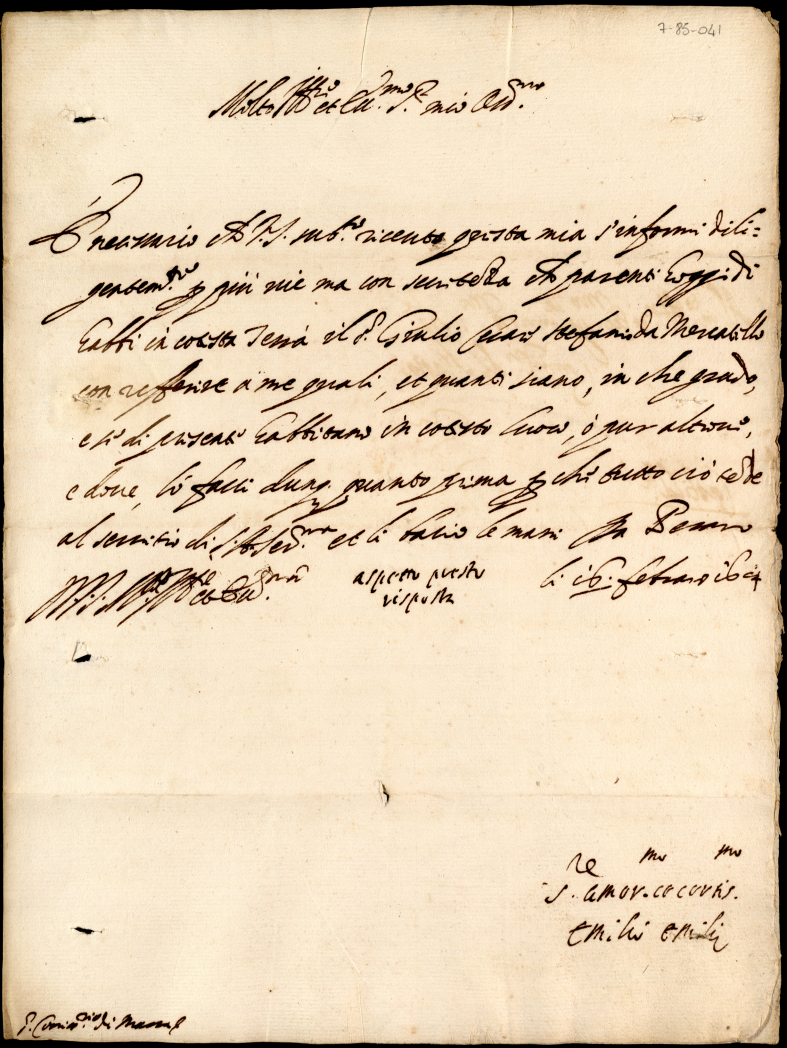 7-85-041
Molto Ill.re et Ecc.mo S.r mio Oss.mo
È necessario che V.S. sub.to ricevuta questa mia s'informi dili=
gentem.te p più vie ma con secretezza che parenti hoggidì
habbi in cotesta Terra il S.r Giulio Cesare Stefani da Mercatello
con referire à me quali, et quanti siano, in che grado,
e se di presente habbitano in cotesto luoco, ò pur altrove,
e dove, lo facci dunq. quanto prima p che tutto ciò cede
al servitio di S.A. Ser.ma et li bacio le mani Da Pesaro
D.V.S. M.to Ill.re et Ecc.ma aspetto presto li 16. febraro
risposta
S.re amor.mo cortis.mo
Emilio Emilij
S. Comiss.rio di Massa